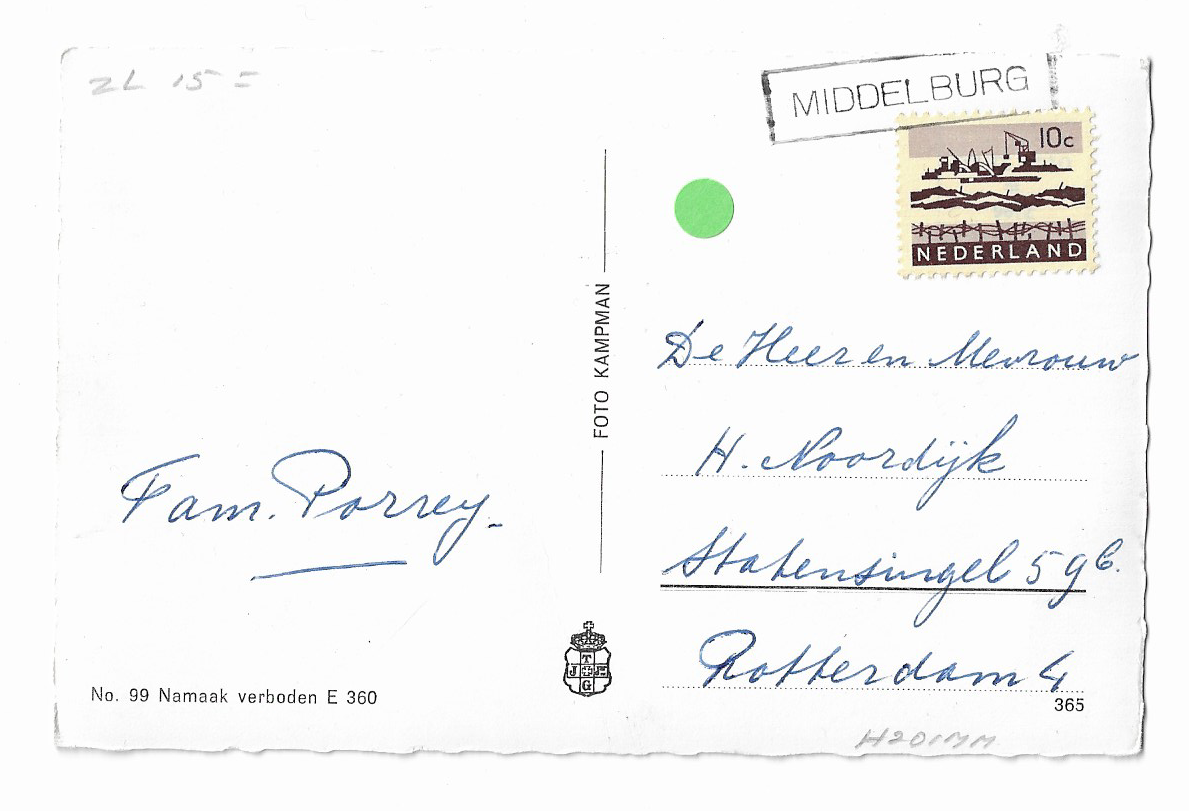 ZL 15 =
MIDDELBURG
10c
NEDERLAND
FOTO KAMPMAN
De Heer en Mevrouw
H. Noordijk
Statensingel 59b.
Rotterdam 4
Fam. Porrey-
T
J
G
No. 99 Namaak verboden E 360
365